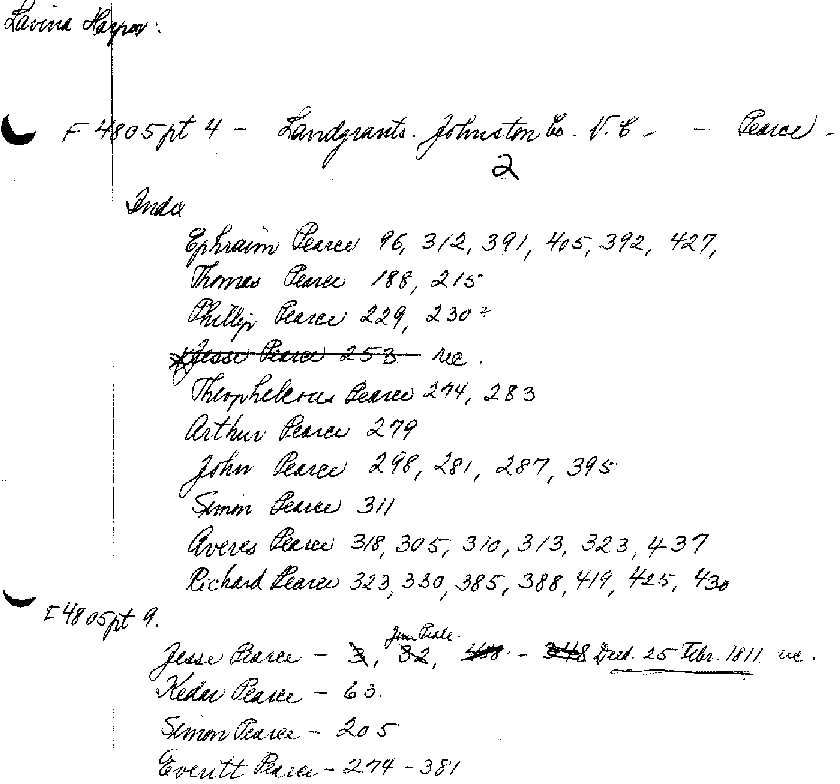 Lavina Harper:
F 4805 pt 4 - Landgrants. Johnston Co. N.C. - - Pearce -
2
Inda
Ephraim Pearce 96, 312, 391, 405, 392, 427,
Thomas Pearce 188, 215
Phillip Pearce 229, 230
Jesse Pearce 253 rec.
Theophelous Pearce 274, 283
Arthur Pearce 279
John Pearce 298, 281, 287, 395
Simon Pearce 311
Averes Pearce 318, 305, 310, 313, 323, 437
Richard Pearce 323, 330, 385, 388, 419, 425, 430
F 4805 pt 9.
Jesse Pearce - 3, 32, 408 - 348 Deed. 25 Febr. 1811 rec.
Kedar Pearce - 63.
Simon Pearce - 205
Everitt Pearce - 274 - 381